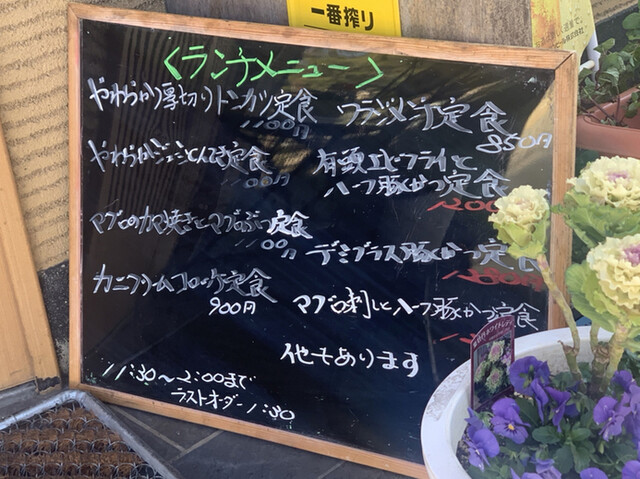 一番搾り
〈ランチメニュー〉
やわらかり厚切りトンカツ定食
1100円
やわらかジューシーとんてき定食
00円
マグロのカマ焼きとマグロぶつ定食
1100円
カニクリームコロッケ定食
900円
11:30〜2:00まで
ラストオーダー1:30
定食
850円
有頭エビフライと
ハーフ豚かつ定食
120
デミグラス豚かつ定食
マグロ刺しとハーフ豚かつ定食
他もあります